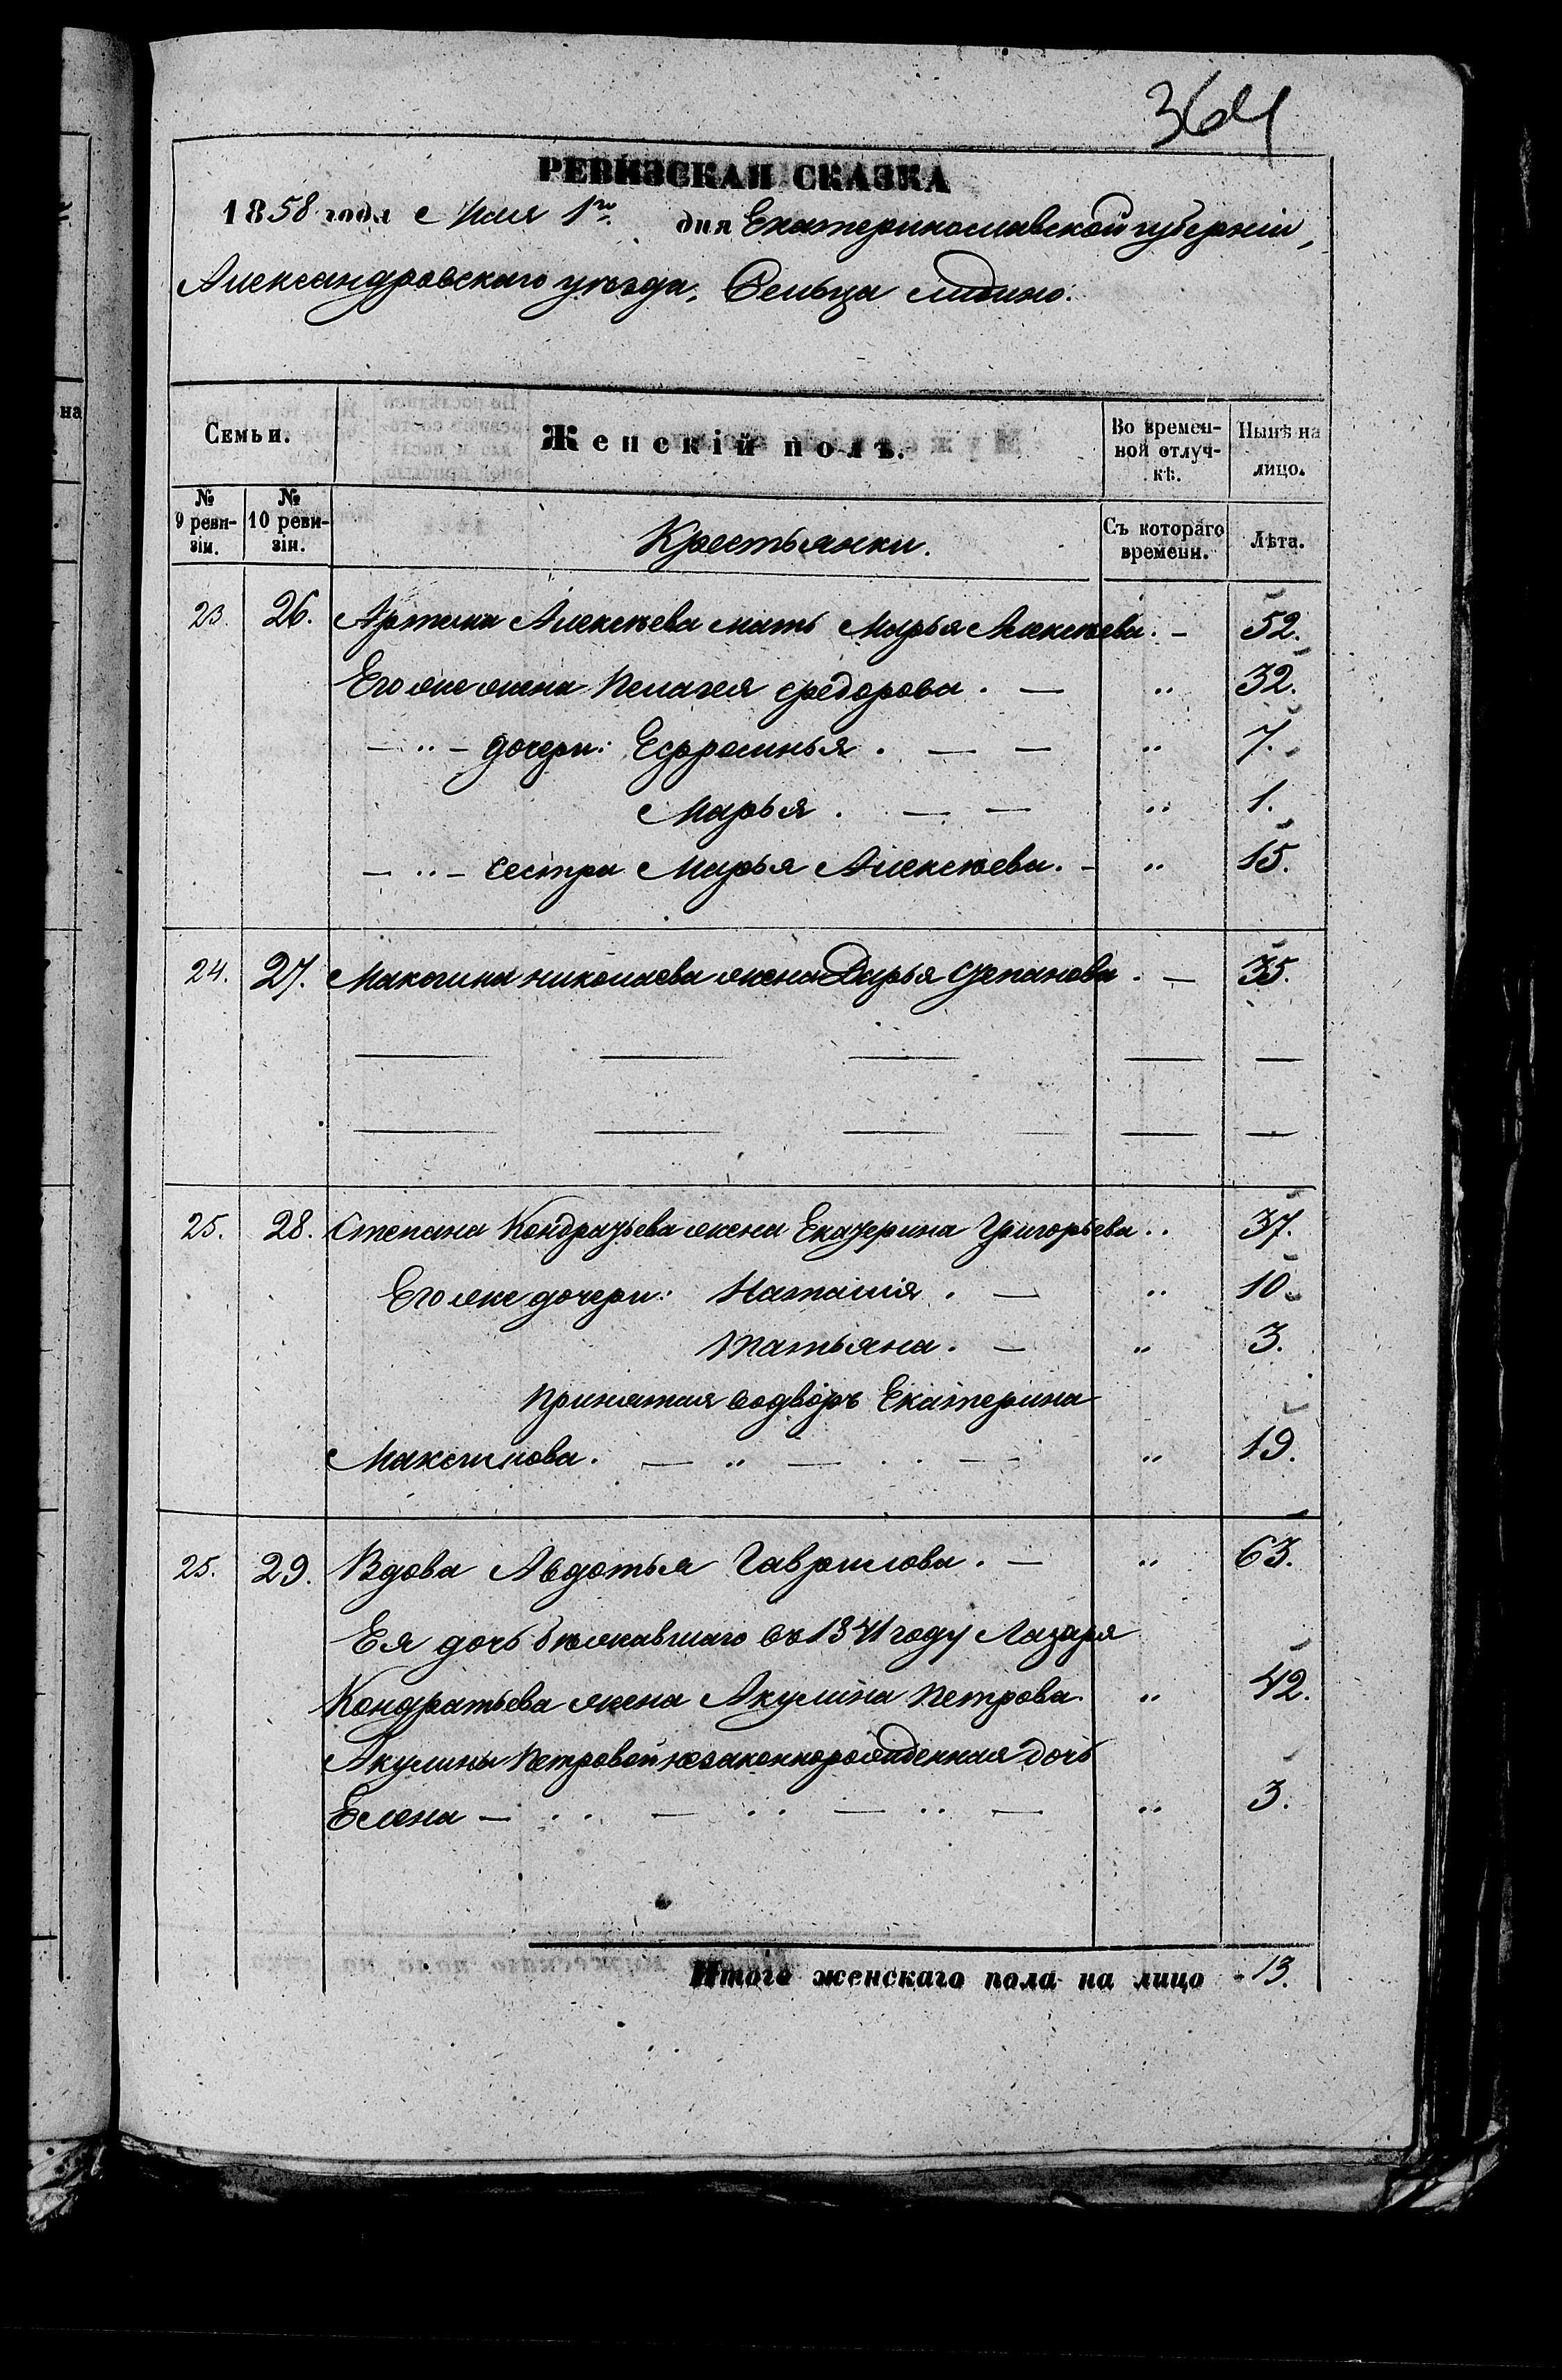 364
РЕВИЗСКАЯ СКАЗКА
1858 года Мая 1го дня Екатеринославской губерніи,
Александровскаго уѣзда, Сельца
Семьи. Женскій полъ. Во времен-ной отлуч-кѣ. Нынѣ на лицо.
№ 9 реви-зіи. № 10 реви-зіи. Крестьянки. Съ котораго времени. Лѣта.
23. 26. Артема Алексѣева мать Марья Алексѣева. – 52.
Его же жена Пелагея Федорова. — „ 32.
— „ – дочери: Ефросинья. — — „ 7.
Марья. — — „ 1.
— „ – сестра Марья Алексѣева. – „ 15.
24. 27. Максима Николаева жена Дарья Степанова. — 35.
— — — — —
— — — — — —
25. 28. Степана Кондратьева жена Екатерина Григорьева.. 37.
Его же дочери: Наталія. — „ 10.
Татьяна. — „ 3.
Принятая во дворъ Екатерина
Максимова. — „ — .. — „ 19.
25. 29. Вдова Авдотья Гаврилова. — „ 63.
Ея дочь бѣжавшаго въ 1841 году Лазаря
Кондратьева жена Акулина Петрова. „ 42.
Акулины Петровой незаконнорожденная дочь
Елена — .. — .. — .. — „ 3.
Итого женскаго пола на лицо - 13.